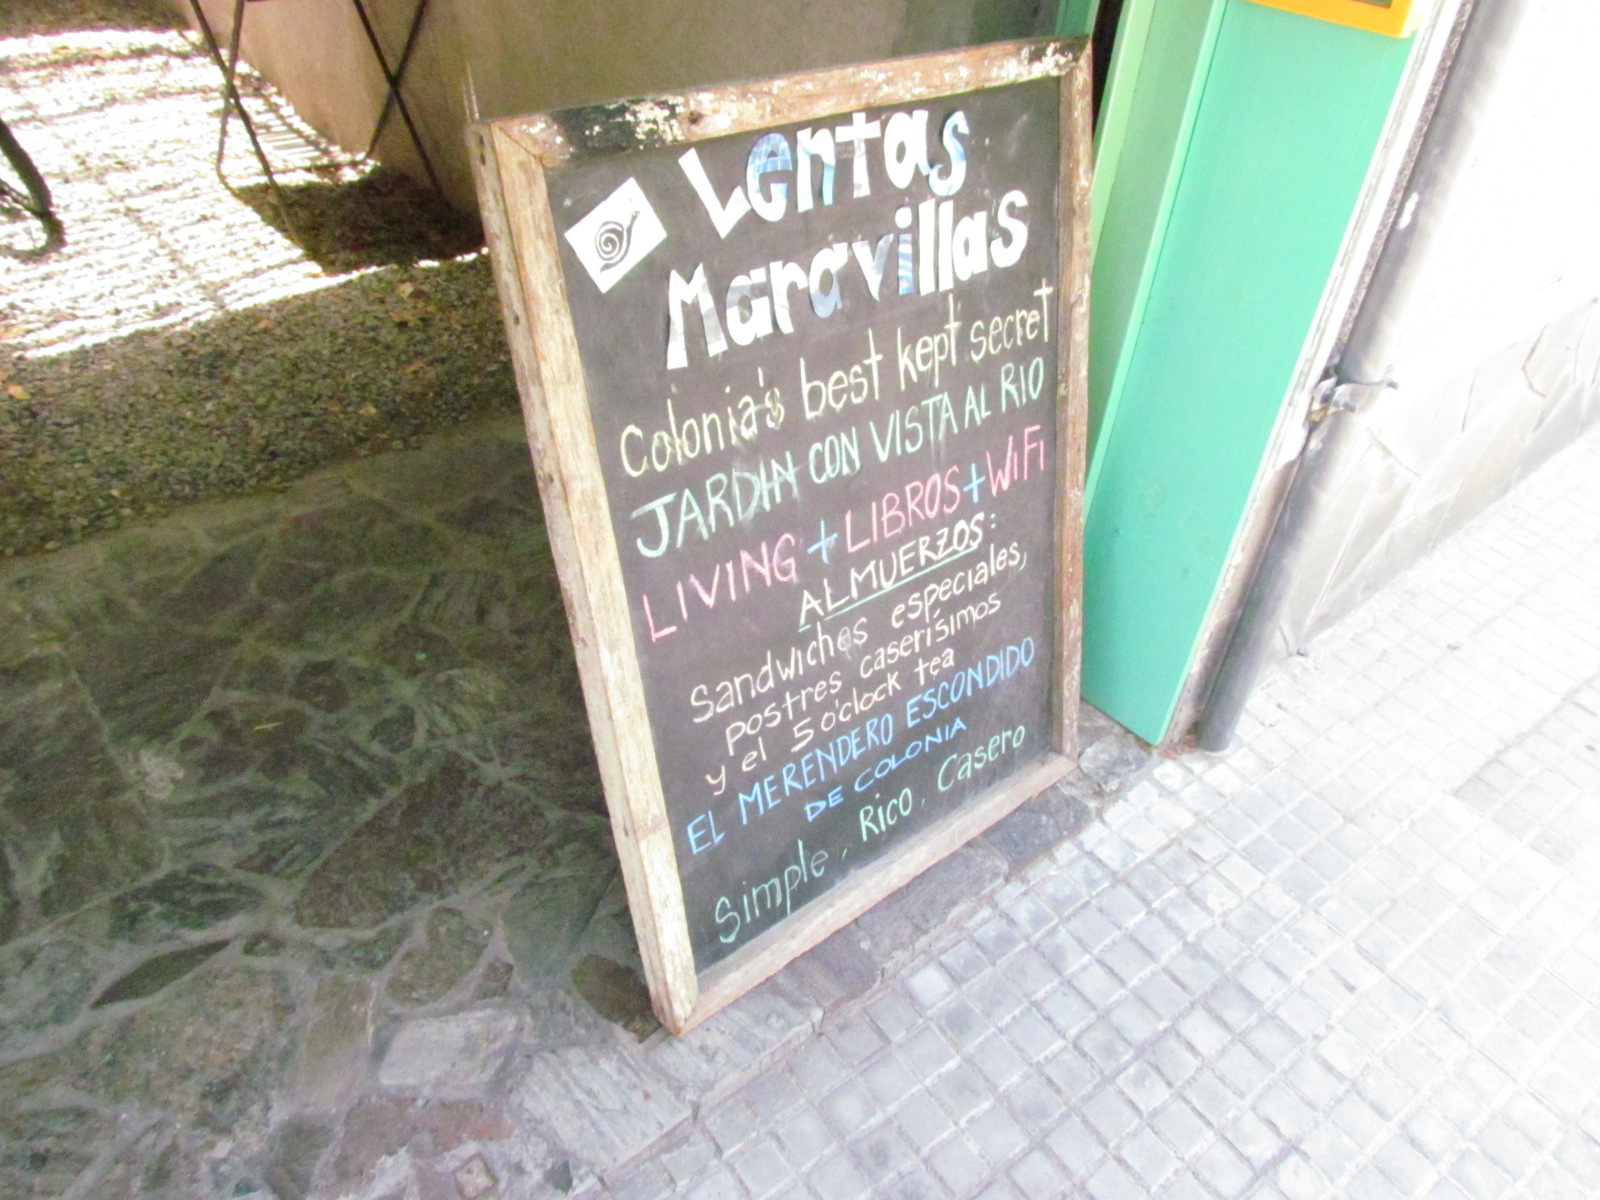 Lentas
Maravillas
Colonia's best kept secret
JARDIN CON VISTA AL RIO
LIVING + LIBROS + WiFi
ALMUERZOS:
Sandwiches especiales,
postres caserísimos
y el 5 o'clock tea
EL MERENDERO ESCONDIDO
DE COLONIA
Simple, Rico, Casero